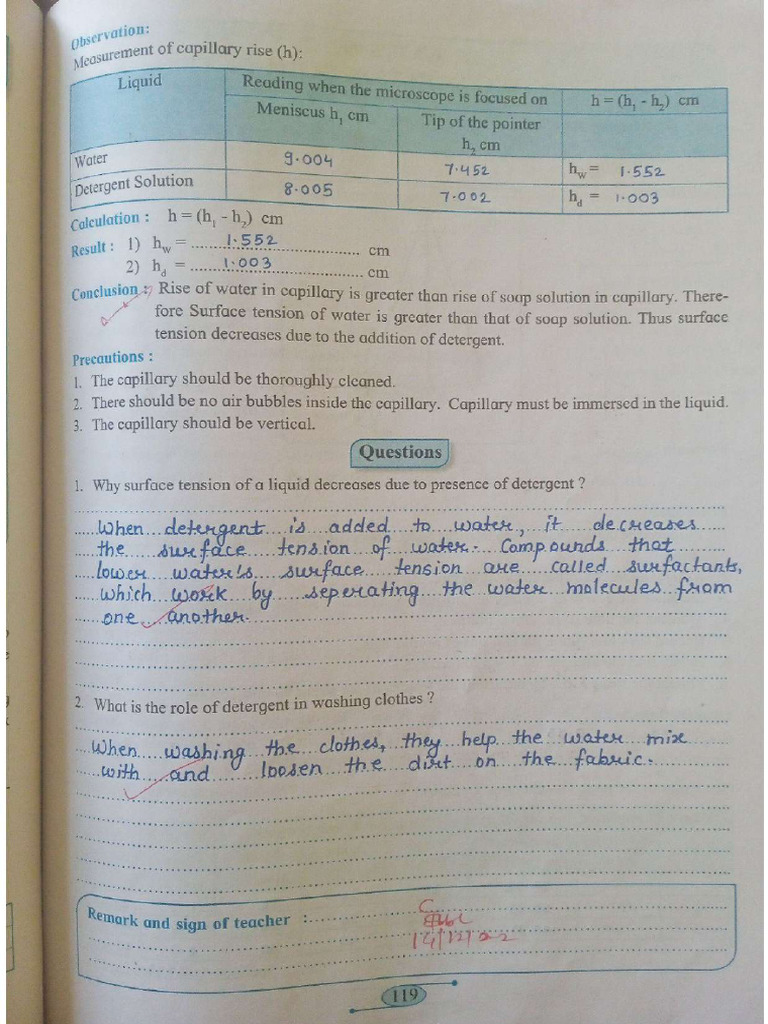 Observation:
Measurement of capillary rise (h):
Liquid Reading when the microscope is focused on h = (h₁ - h₂) cm
Meniscus h₁ cm Tip of the pointer h₂ cm
Water 9.004 7.452 h_w = 1.552
Detergent Solution 8.005 7.002 h_d = 1.003
Calculation : h = (h₁ - h₂) cm
Result : 1) h_w = 1.552 cm
2) h_d = 1.003 cm
Conclusion : Rise of water in capillary is greater than rise of soap solution in capillary. There-
fore Surface tension of water is greater than that of soap solution. Thus surface
tension decreases due to the addition of detergent.
Precautions :
1. The capillary should be thoroughly cleaned.
2. There should be no air bubbles inside the capillary. Capillary must be immersed in the liquid.
3. The capillary should be vertical.
Questions
1. Why surface tension of a liquid decreases due to presence of detergent ?
When detergent is added to water, it decreases
the surface tension of water. Compounds that
lower water's surface tension are called surfactants,
which work by seperating the water molecules from
one another.
2. What is the role of detergent in washing clothes ?
When washing the clothes, they help the water mix
with and loosen the dirt on the fabric.
Remark and sign of teacher :
C
14/12/22
119